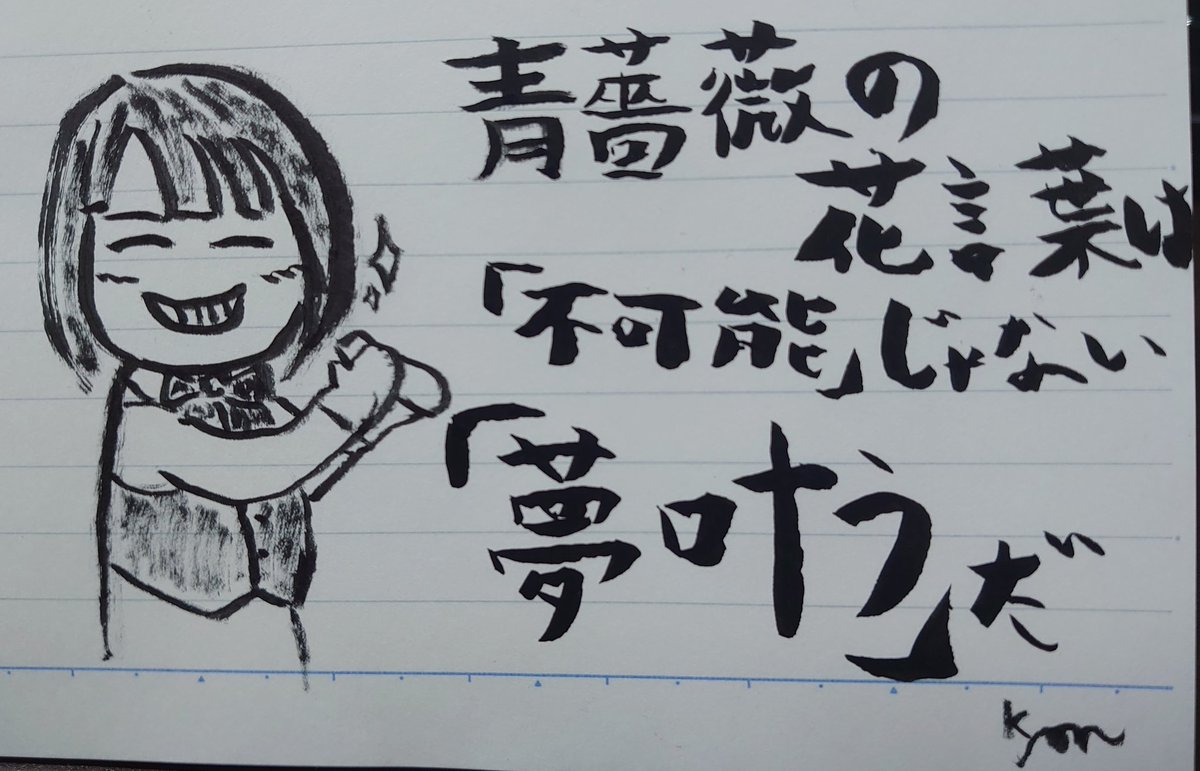 青薔薇の
花言葉は
「不可能」じゃない
「夢叶う」だ